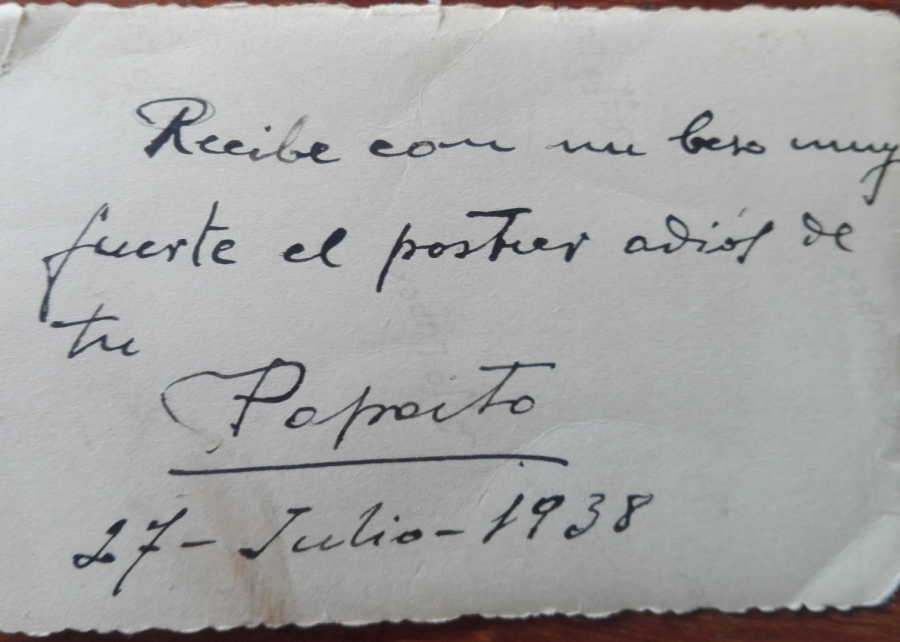 Recibe con un beso muy
fuerte el postrer adiós de
tu
Papaito
27 - Julio - 1938